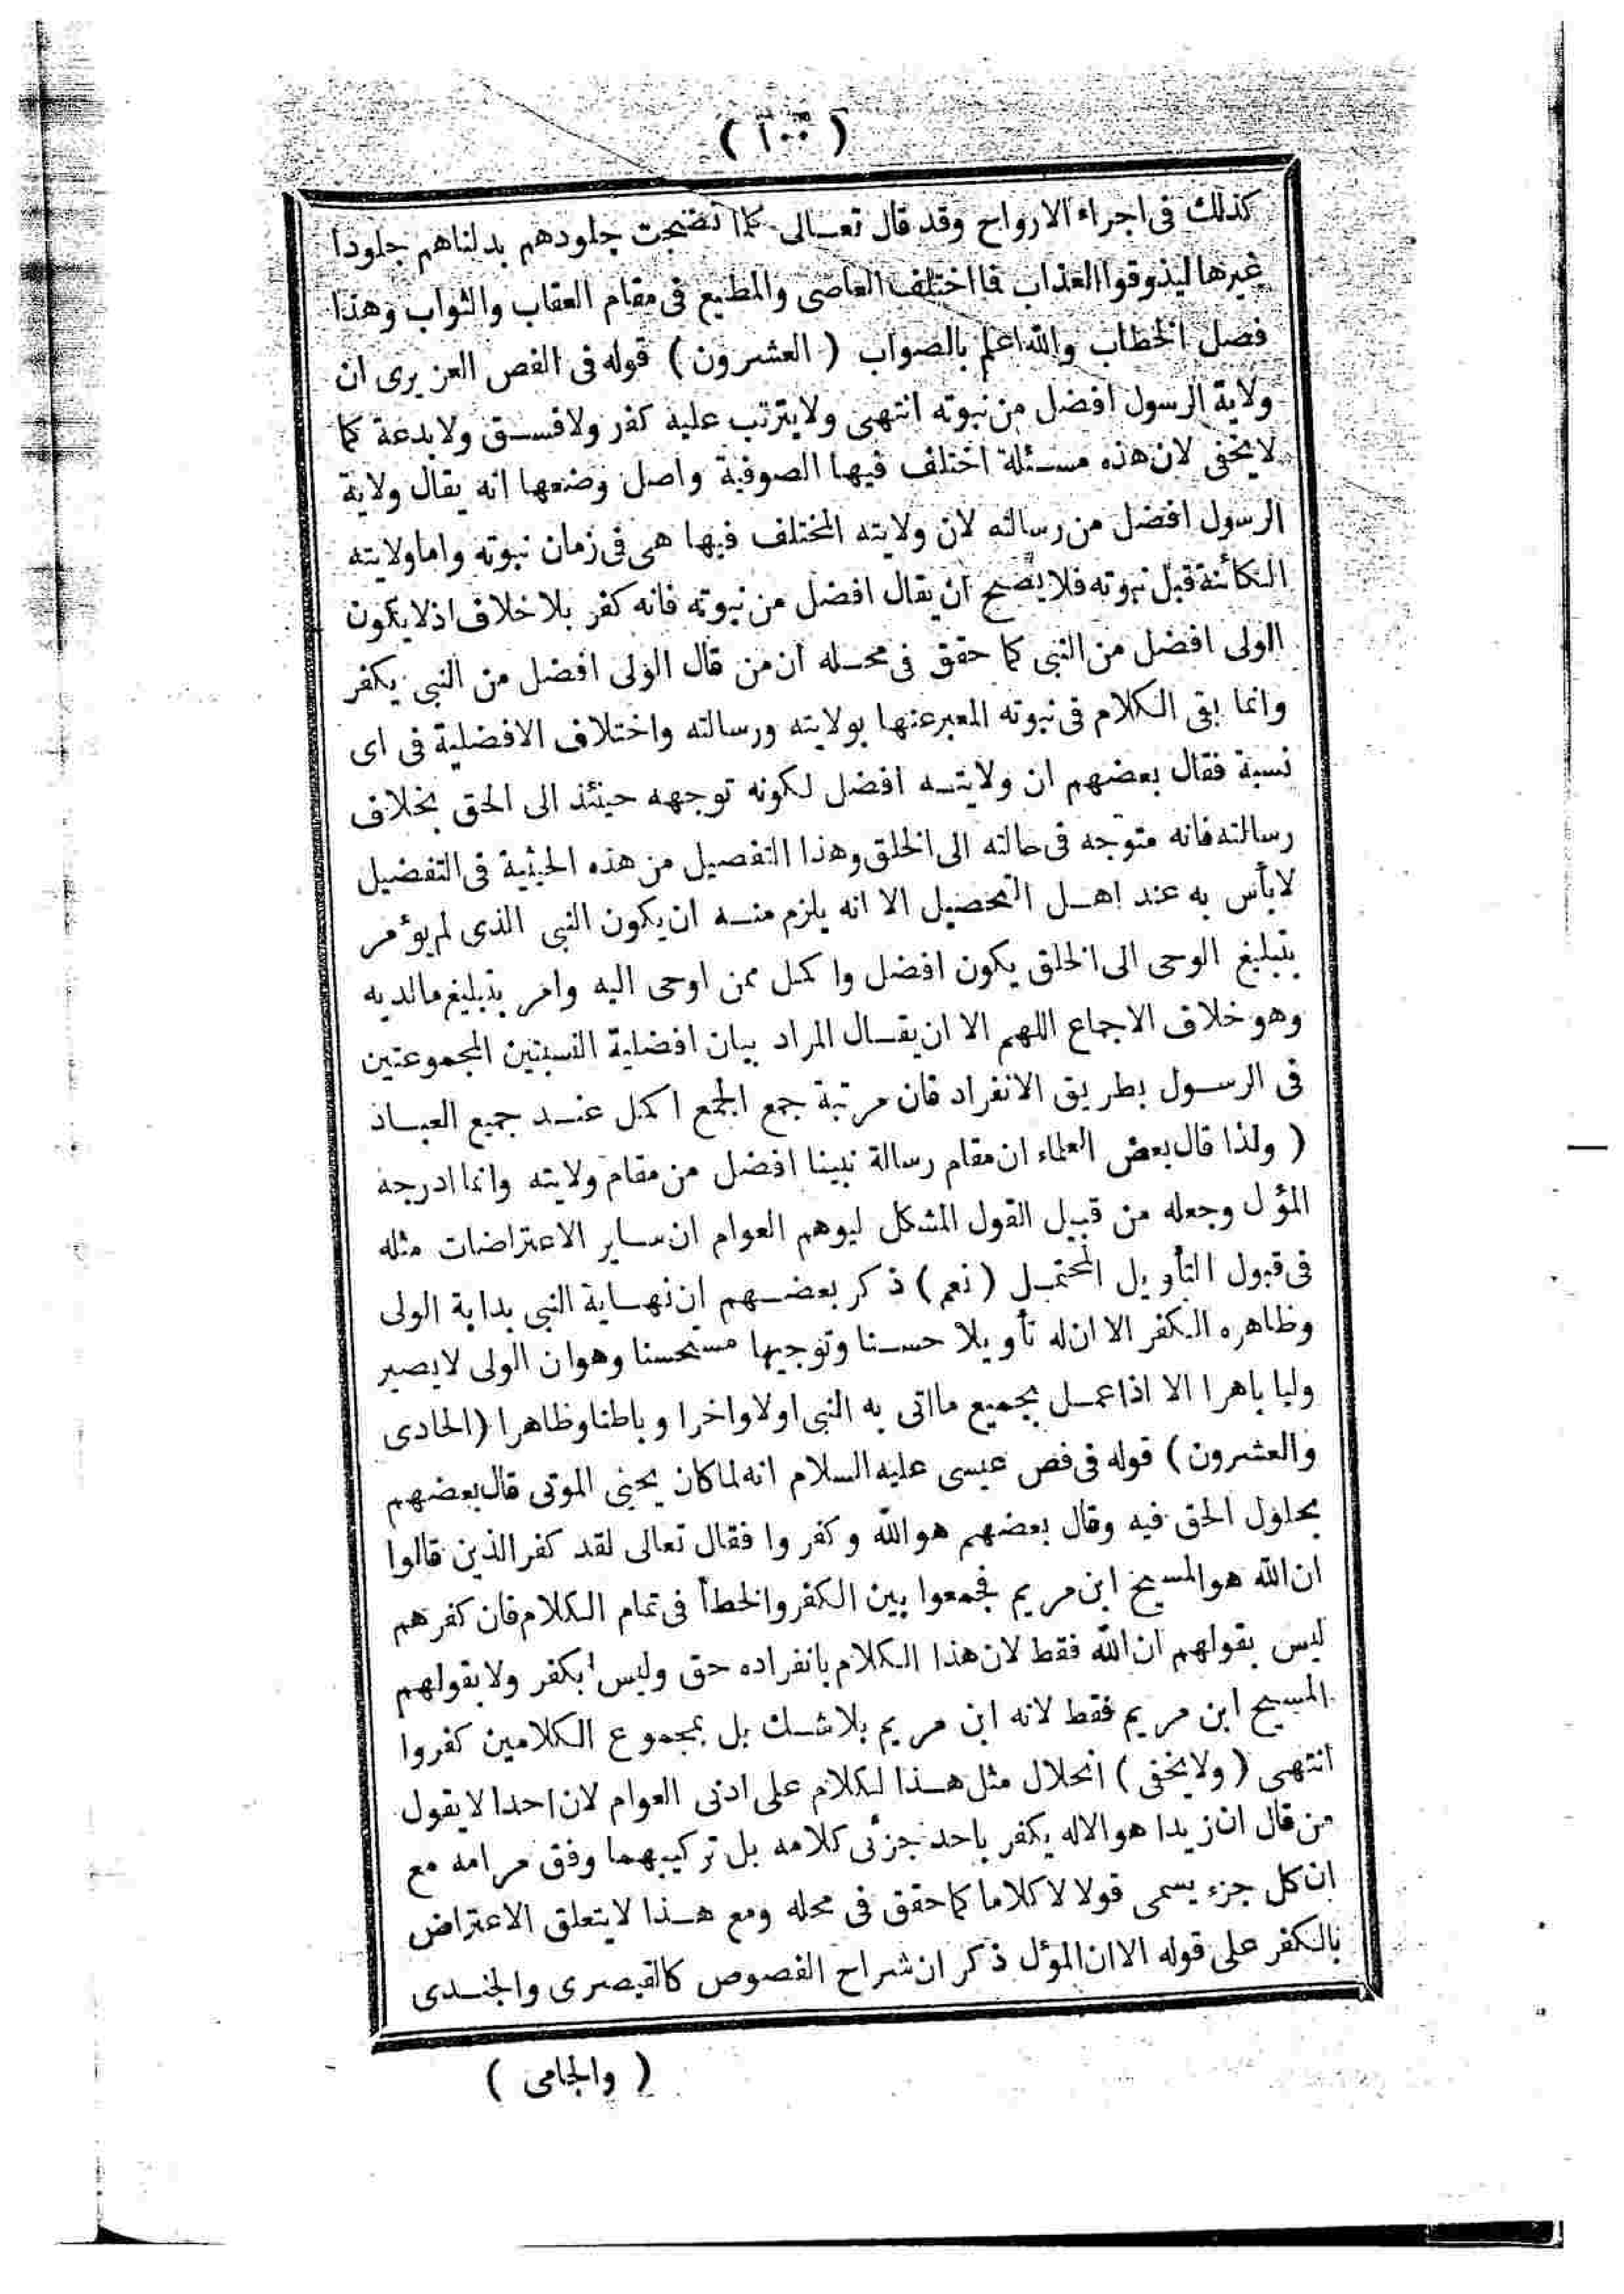 ( ١٠٠ )
كذلك فى اجراء الارواح وقد قال تعـالى كلما نضجت جلودهم بدلناهم جلودا
غيرها ليذوقوا العذاب فما اختلف العاصى والمطيع فى مقام العقاب والثواب وهذا
فصل الخطاب والله اعلم بالصواب ( العشرون ) قوله فى الفص العزيرى ان
ولاية الرسول افضل من نبوته انتهى ولا يترتب عليه كفر ولا فسـق ولا بدعة كما
لا يخفى لان هذه مسـئلة اختلف فيها الصوفية واصل وضعها انه يقال ولاية
الرسول افضل من رسالته لان ولايته المختلف فيها هى فى زمان نبوته واما ولايته
الكائنة قبل نبوته فلا يصح ان يقال افضل من نبوته فانه كفر بلا خلاف اذ لا يكون
الولى افضل من النبى كما حقق فى محـله ان من قال الولى افضل من النبى يكفر
وانما بقى الكلام فى نبوته المعبر عنها بولايته ورسالته واختلاف الافضلية فى اى
نسبة فقال بعضهم ان ولايتـه افضل لكونه توجهه حينئذ الى الحق بخلاف
رسالته فانه متوجه فى حالته الى الخلق وهذا التفصيل من هذه الحيثية فى التفضيل
لا بأس به عند اهـل التحصيل الا انه يلزم منـه ان يكون النبى الذى لم يؤمر
بتبليغ الوحى الى الخلق يكون افضل واكمل ممن اوحى اليه وامر بتبليغ مالديه
وهو خلاف الاجماع اللهم الا ان يقـال المراد بيان افضلية النسبتين المجموعتين
فى الرسـول بطريق الانفراد فان مرتبة جمع الجمع اكمل عنـد جميع العبـاد
( ولذا قال بعض العلماء ان مقام رسالة نبينا افضل من مقام ولايته وانما ادرجه
المؤل وجعله من قبيل القول المشكل ليوهم العوام ان سـاير الاعتراضات مثله
فى قبول التأويل المحتمـل ( نعم ) ذكر بعضـهم ان نهـاية النبى بداية الولى
وظاهره الكفر الا ان له تأويلا حسـنا وتوجيها مستحسنا وهو ان الولى لا يصير
وليا باهرا الا اذا عمـل بجميع ما اتى به النبى اولا واخرا وباطنا وظاهرا ( الحادى
والعشرون ) قوله فى فص عيسى عليه السلام انه لما كان يحيى الموتى قال بعضهم
بحلول الحق فيه وقال بعضهم هو الله وكفروا فقال تعالى لقد كفر الذين قالوا
ان الله هو المسيح ابن مريم فجمعوا بين الكفر والخطأ فى تمام الكلام فان كفرهم
ليس بقولهم ان الله فقط لان هذا الكلام بانفراده حق وليس بكفر ولا بقولهم
المسيح ابن مريم فقط لانه ابن مريم بلا شـك بل بمجموع الكلامين كفروا
انتهى ( ولا يخفى ) انحلال مثل هـذا لكلام على ادنى العوام لان احدا لا يقول
من قال ان زيدا هو الاله يكفر باحد جزئى كلامه بل تركيبهما وفق مرامه مع
ان كل جزء يسمى قولا لا كلاما كما حقق فى محله ومع هـذا لا يتعلق الاعتراض
بالكفر على قوله الا ان المؤل ذكر ان شراح الفصوص كالقيصرى والجنـدى
( والجامى )